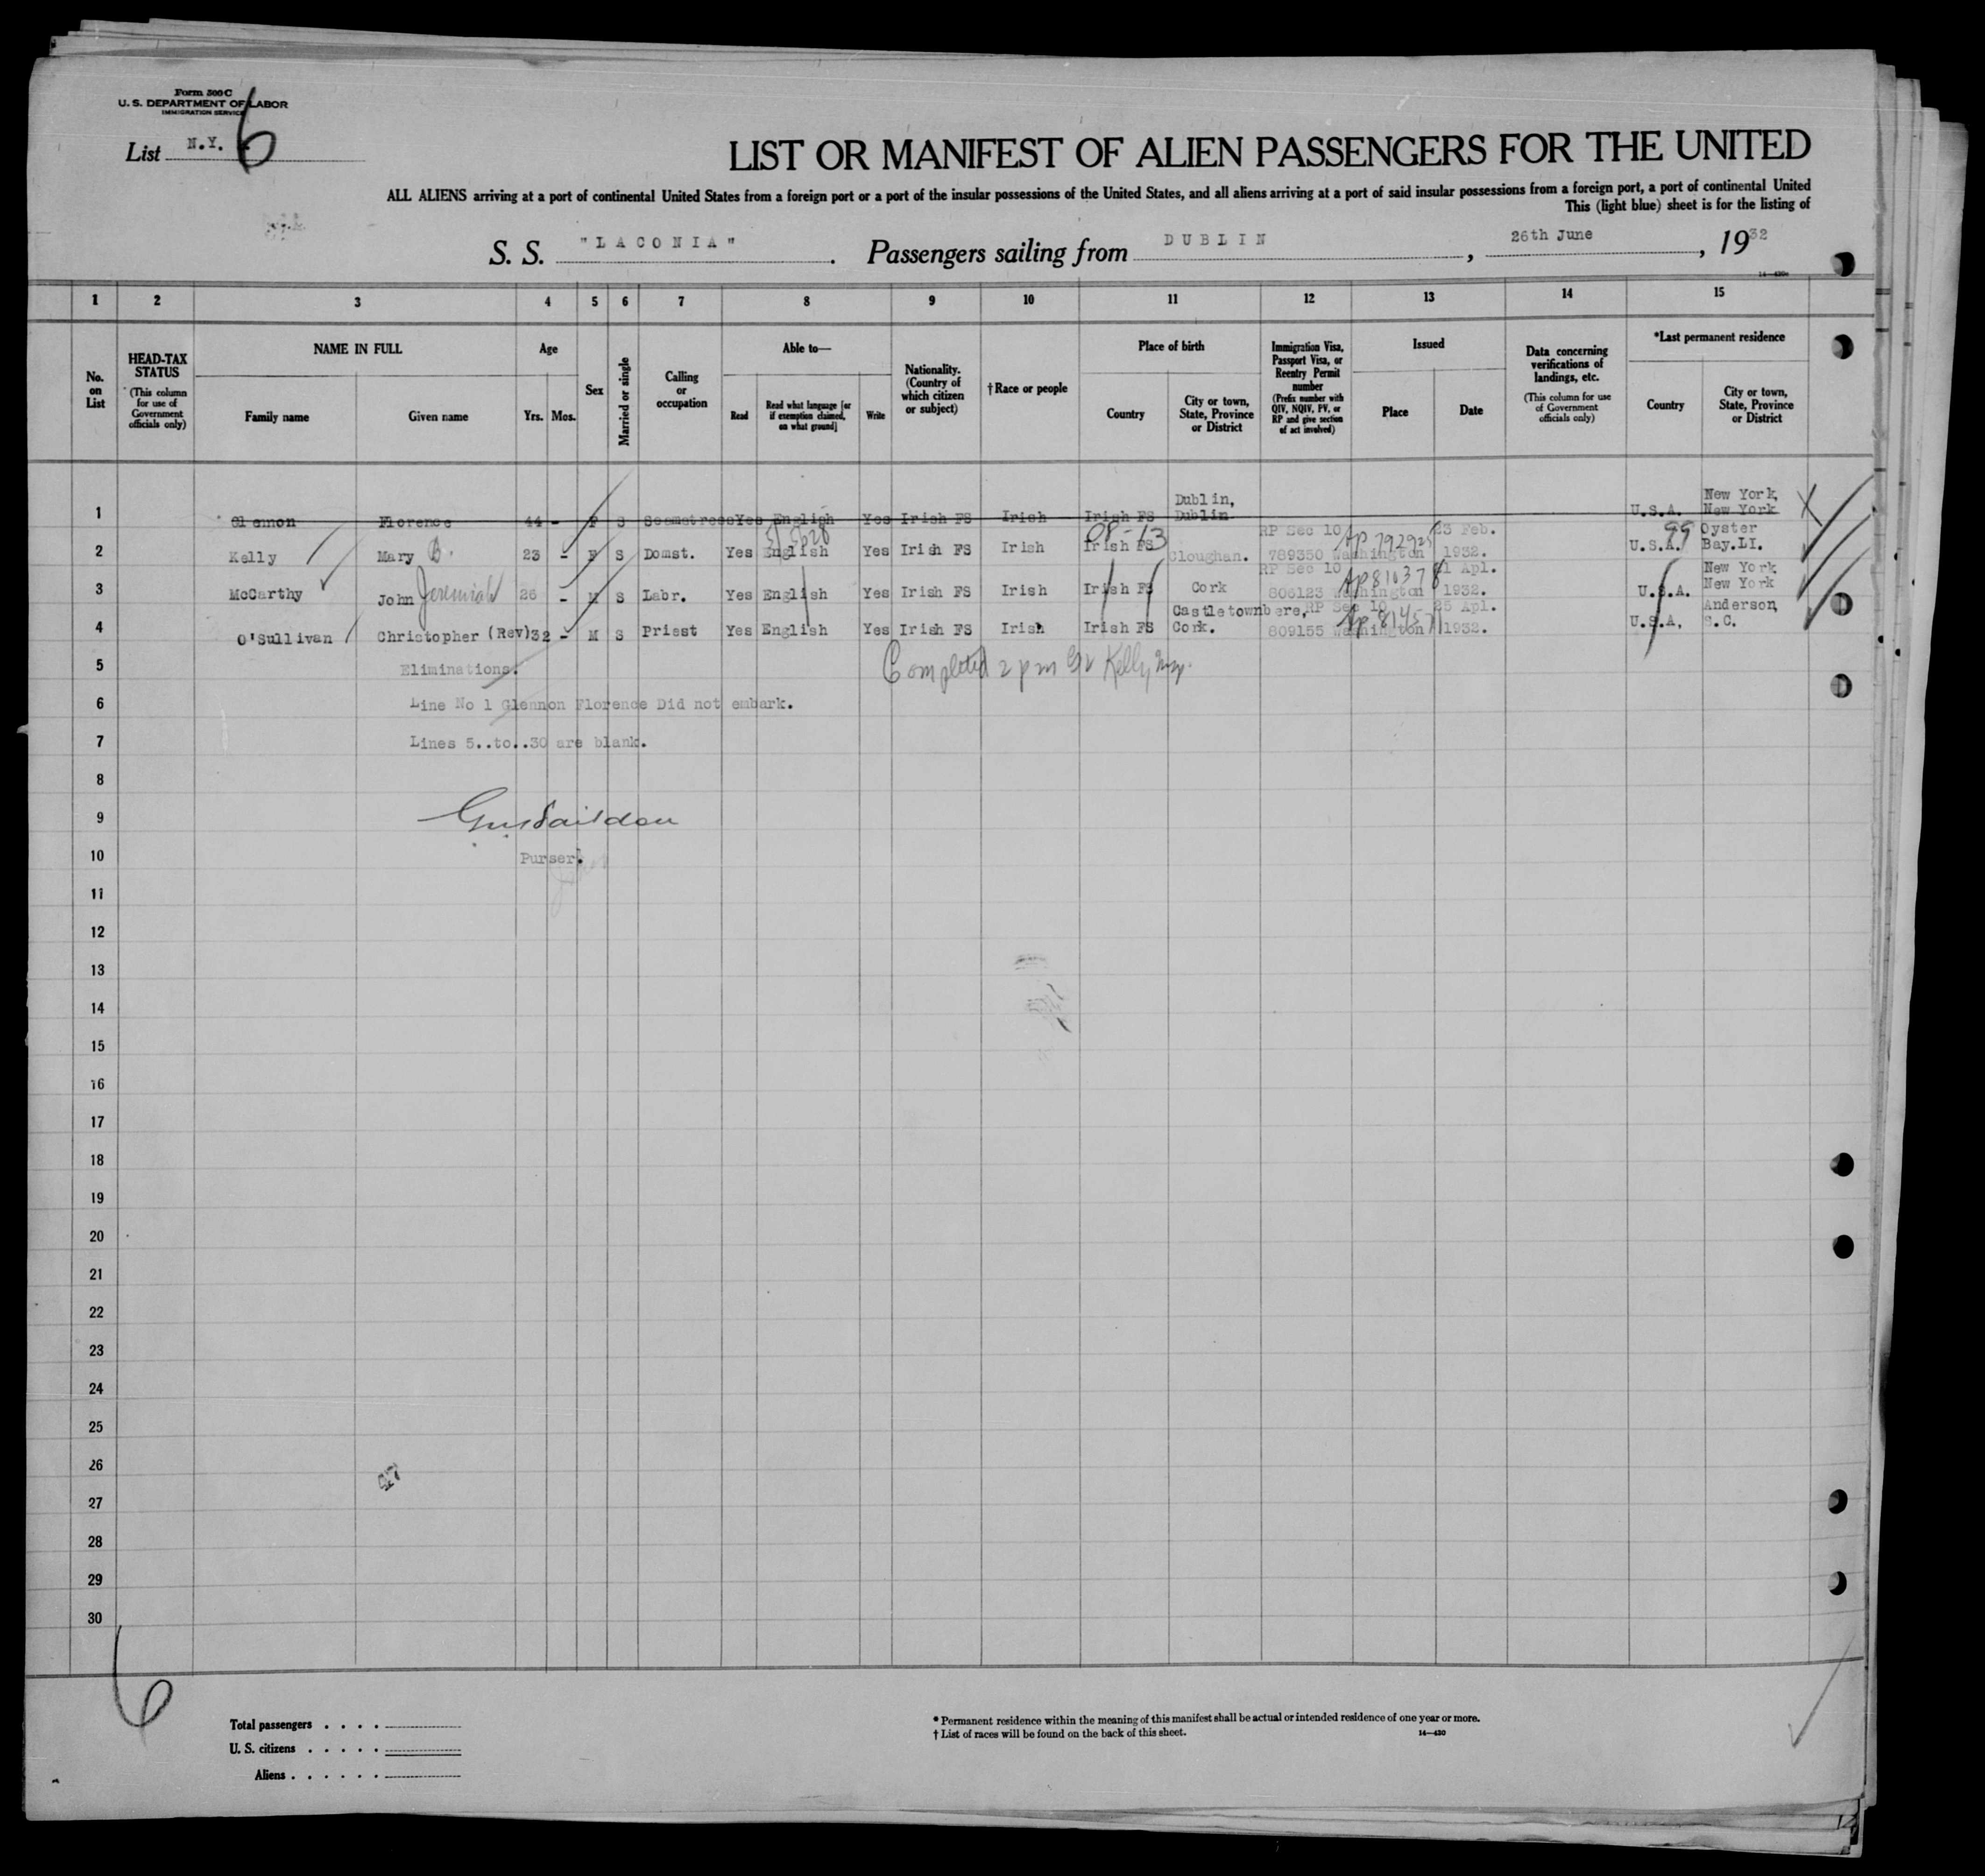 Form 500 C
U. S. DEPARTMENT OF LABOR
IMMIGRATION SERVICE
List N.Y. 6
LIST OR MANIFEST OF ALIEN PASSENGERS FOR THE UNITED
ALL ALIENS arriving at a port of continental United States from a foreign port or a port of the insular possessions of the United States, and all aliens arriving at a port of said insular possessions from a foreign port, a port of continental United
This (light blue) sheet is for the listing of
S. S. "LACONIA". Passengers sailing from DUBLIN, 26th June, 1932
1 2 3 4 5 6 7 8 9 10 11 12 13 14 15
No. on List
HEAD-TAX STATUS
(This column for use of Government officials only)
NAME IN FULL
Family name
Given name
Age
Yrs.
Mos.
Sex
Married or single
Calling or occupation
Able to—
Read
Read what language [or if exemption claimed, on what ground]
Write
Nationality. (Country of which citizen or subject)
† Race or people
Place of birth
Country
City or town, State, Province or District
Immigration Visa, Passport Visa, or Reentry Permit number
(Prefix number with QIV, NQIV, PV, or RP and give section of act involved)
Issued
Place
Date
Data concerning verifications of landings, etc.
(This column for use of Government officials only)
*Last permanent residence
Country
City or town, State, Province or District
1 Florence 44 - F S Seamstress Yes English Yes Irish FS Irish Irish FS Dublin, Dublin. U.S.A. New York, New York X
08-13 99
2 Kelly Mary B. 23 - F S Domst. Yes English Yes Irish FS Irish Irish FS Cloughan. RP Sec 10 789350 Washington 23 Feb. 1932. U.S.A. Oyster Bay.LI.
3 McCarthy John Jeremiah 26 - M S Labr. Yes English Yes Irish FS Irish Irish FS Cork RP Sec 10 806123 Washington 1932. U.S.A. New York New York
4 O'Sullivan Christopher (Rev) 32 - M S Priest Yes English Yes Irish FS Irish Irish FS Castletownbere, Cork. RP Sec 10 809155 Washington 25 Apl. 1932. U.S.A. Anderson, S.C.
5 Eliminations. Completed 2 pm Kelly
6 Line No 1 Glennon Florence Did not embark.
7 Lines 5..to..30 are blank.
8
9
10 Purser.
11
12
13
14
15
16
17
18
19
20
21
22
23
24
25
26
27
28
29
30
6
Total passengers . . . .
U. S. citizens . . . . .
Aliens . . . . . .
* Permanent residence within the meaning of this manifest shall be actual or intended residence of one year or more.
† List of races will be found on the back of this sheet. 14—430